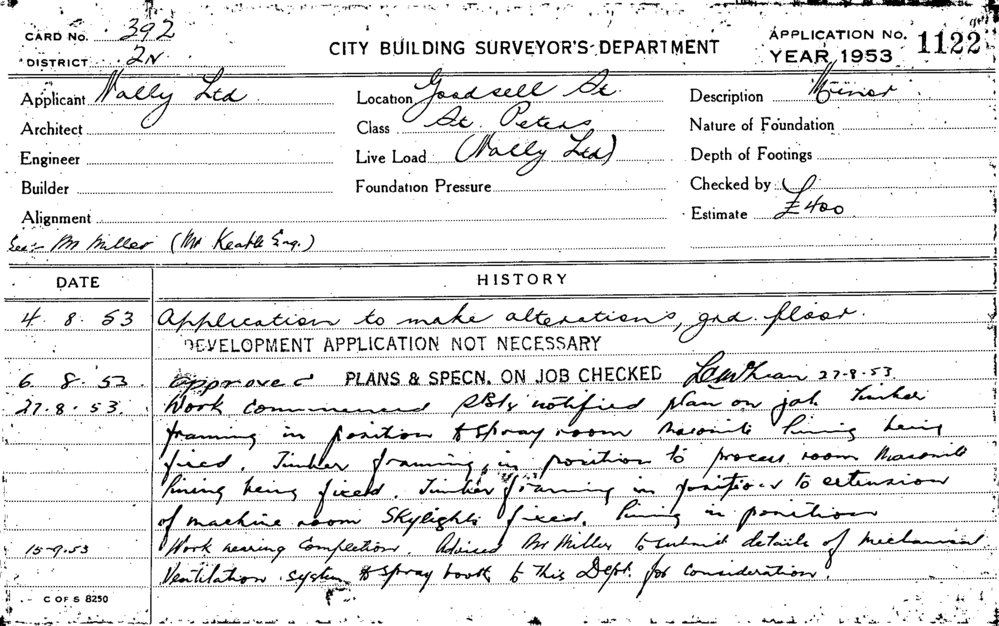 CARD NO. 392
DISTRICT 2N
CITY BUILDING SURVEYOR'S DEPARTMENT
APPLICATION NO. 1122
YEAR 1953
Applicant Nally Ltd
Location Goodsell St.
Description Minor
Architect
Class St. Peters
Nature of Foundation
Engineer
Live Load (Nally Ltd)
Depth of Footings
Builder
Foundation Pressure
Checked by
Alignment
Estimate £400
Mr Miller (Mr Keable Eng.)
DATE HISTORY
4.8.53 Application to make alterations, grd. floor.
DEVELOPMENT APPLICATION NOT NECESSARY
6.8.53 approved PLANS & SPECN. ON JOB CHECKED 27-8-53
27.8.53. Work commenced notified plan on job Timber
framing in position to spray room masonite lining being
fixed. Timber framing in position to process room masonite
lining being fixed. Timber framing in position to extension
of machine room Skylights fixed. lining in position
15-9.53 Work nearing completion. Advised Mr Miller to submit details of mechanical
Ventilation system to spray booth to this Dept. for consideration.
C OF S 8250